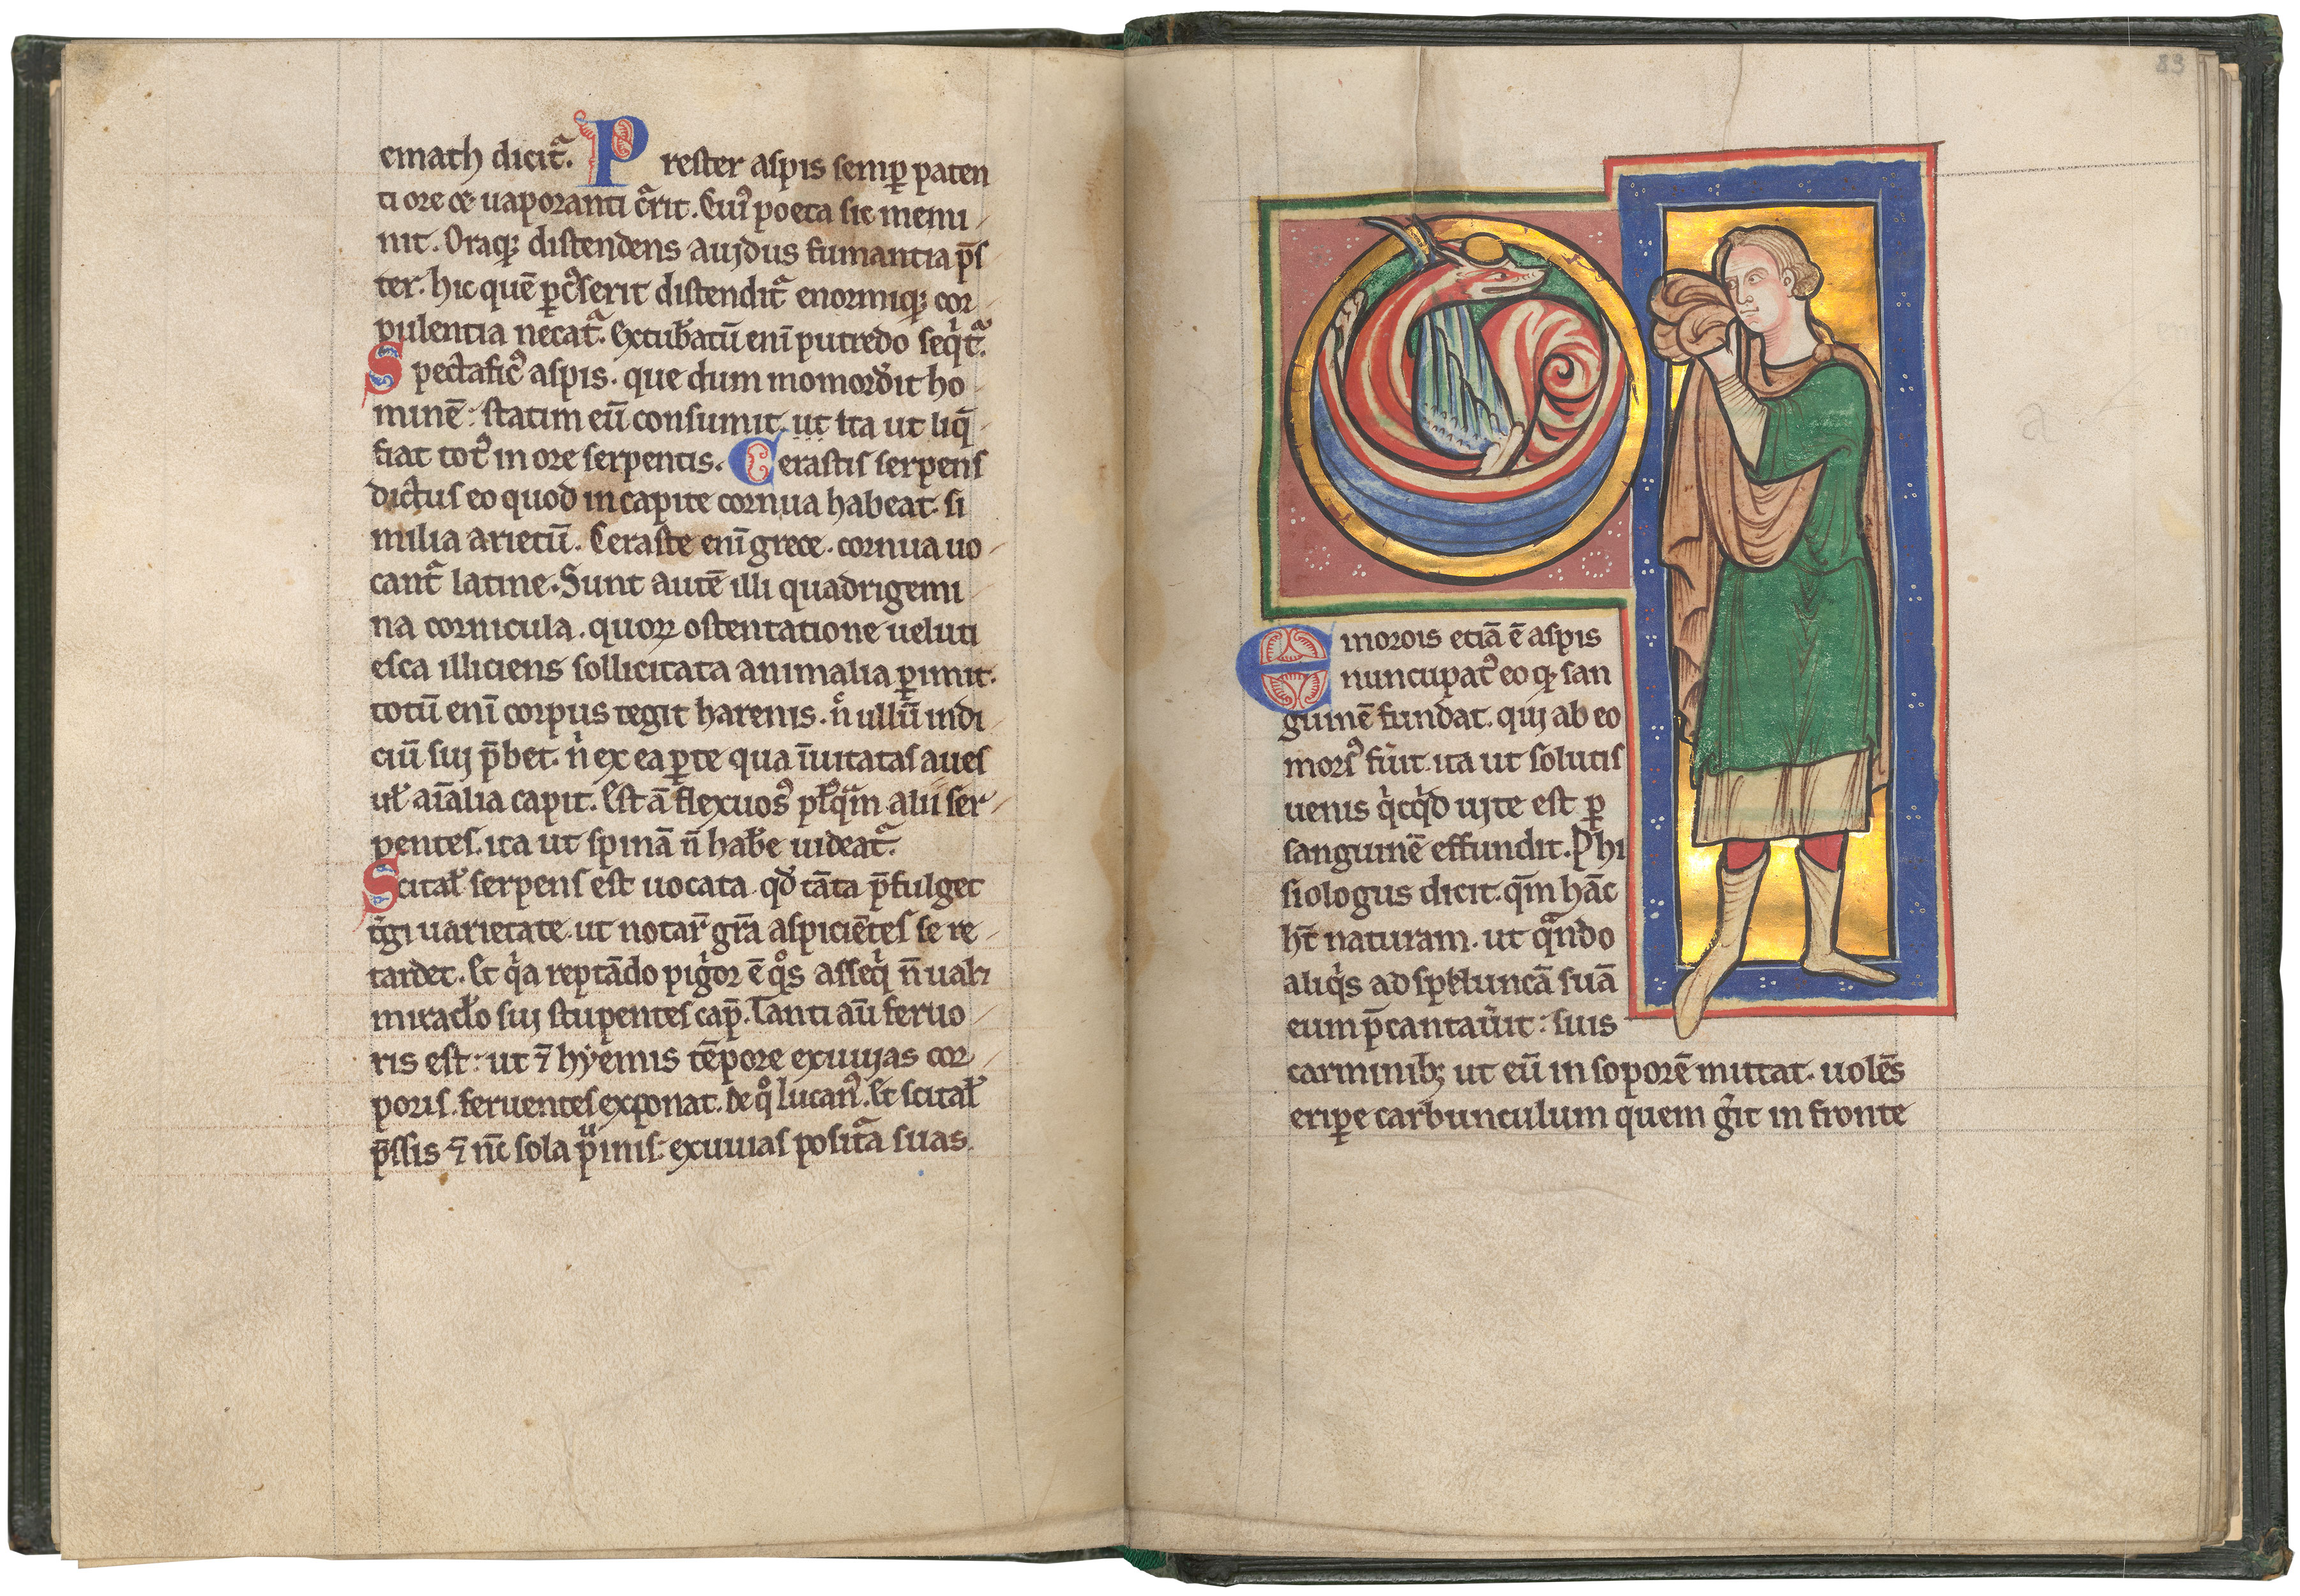 emath dicit᷑. Prester aspis semꝑ paten
ti ore & uaporanti c̃rit. Cuiꝰ poeta sic memi
nit. Oraqꝫ distendens auidus fumantia p̄s
ter. hic quē ꝑcꝰserit distendit᷑ enormiqꝫ cor
pulentia necat᷑. Extub̾atū enī putredo seqͥt᷑.
Spectaficꝰ aspis. que dum momord̾it ho
minē: statim eū consumit. ut ita ut liq̄
fiat totꝰ in ore serpentis. Cerastis serpens
dictus eo quod in capite cornua habeat si
milia arietū. Ceraste enī grece. cornua uo
cant᷑ latine. Sunt autē illi quadrigemi
na cornicula. quoꝝ ostentatione ueluti
esca illiciens sollicitata animalia ꝑimit.
totū enī corpus tegit harenis. nͦ ullū indi
ciū sui p̄bet. nͥ ex ea ꝑte qua īuitatas aues
ul̾ aīalia capit. Est ā flexuosꝰ pl̾qͣm alii ser
pentes. ita ut spinā n̄ hab̾e uideat᷑.
Scital̾ serpens est uocata qd̾ tāta p̄fulget
t̾gi uarietate. ut notar̄ gr̄a aspiciētes se re
tardet. Et qͥa reptādo pigͥor ē qͦs asseqͥ n̄ ualꝫ
miracl̾o sui stupentes cap̄. Tanti aū feruo
ris est: ut ⁊ hyemis tēpore exuuias cor
poris feruentes exponat. de qͦ lucanꝰ. Et scital̾
p̄ssis ⁊ nc̄ sola pͥuinis exuuias posit᷑a suas.
83
Emorois etiā ē aspis
nuncupatꝰ eo qꝫ san
guinē fundat. qui ab eo
morsꝰ fu̾it ita ut solutis
uenis qͥcqͥd uite est ꝑ
sanguinē effundit. Phi
siologus dicit. qm̄ hāc
ht̄ naturam. ut qͣndo
aliqͥs ad spel̾uncā suā
eum p̄cantau̾it: suis
carminibꝫ ut eū in soporē mittat. uolēs
eriꝑe carbunculum quem g̾it in fronte
a